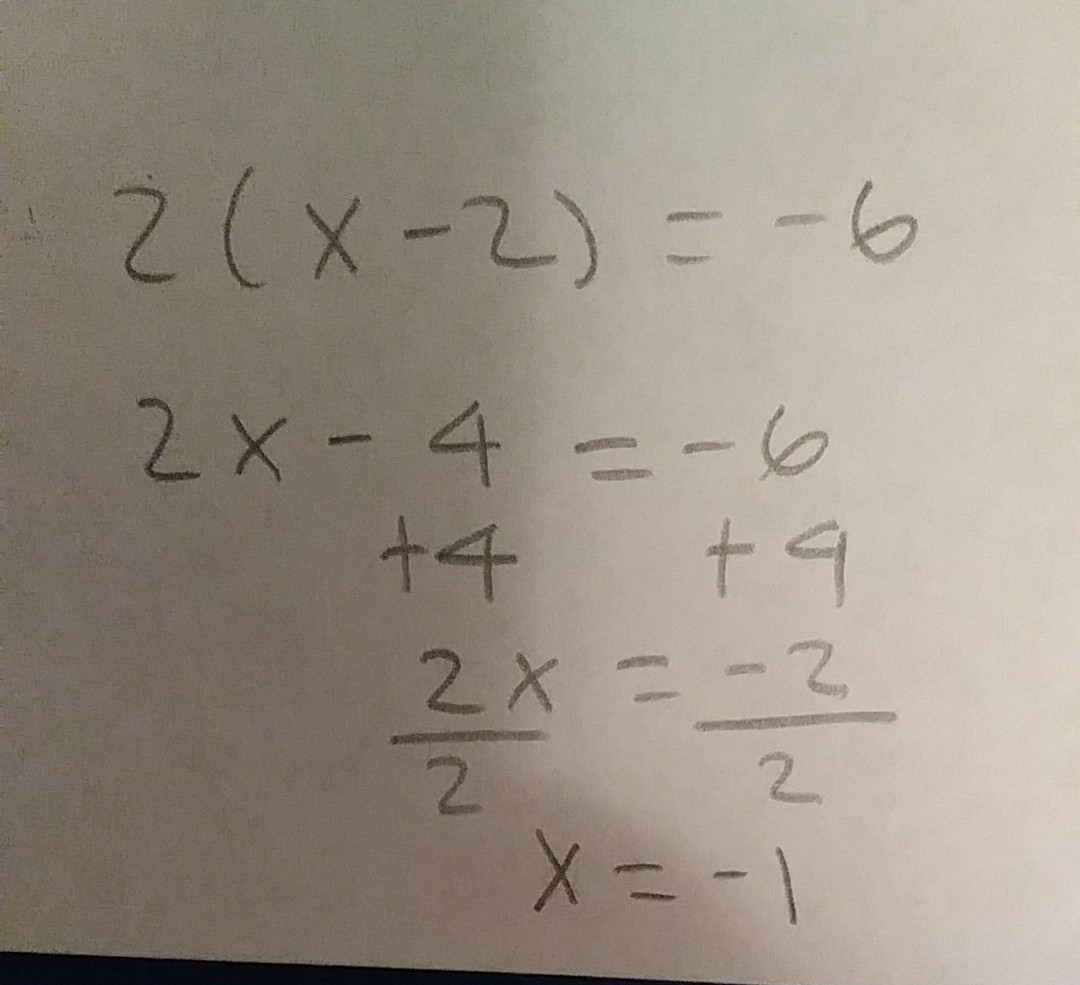 2(x-2) = -6
2x - 4 = -6
+4 +4
2x = -2
2 2
x = -1